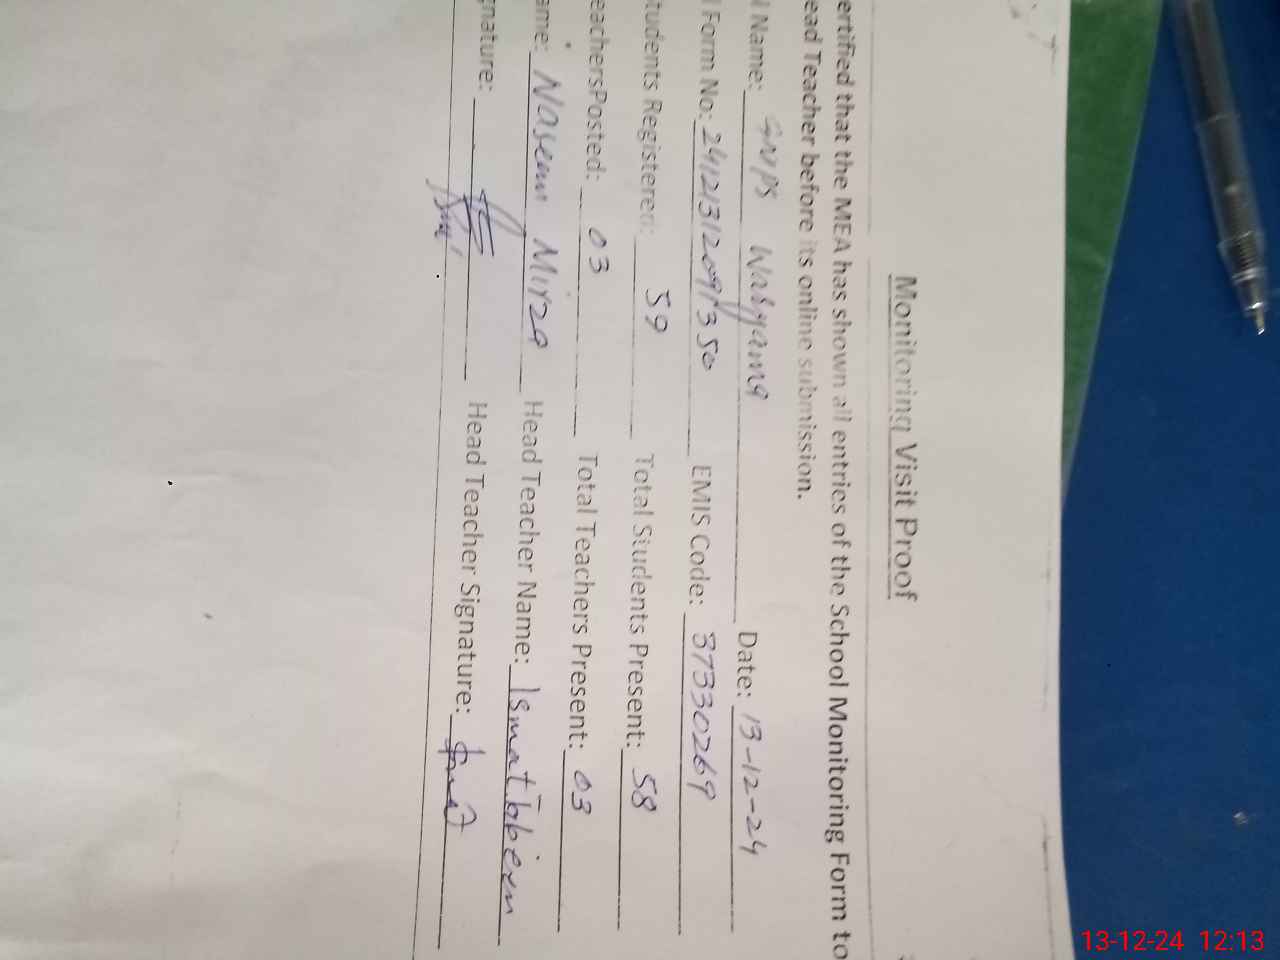 Monitoring Visit Proof
ertified that the MEA has shown all entries of the School Monitoring Form to
ead Teacher before its online submission.
l Name: GMPS Date: 13-12-24
l Form No: EMIS Code: 37330269
tudents Registered: 59 Total Students Present: 58
eachersPosted: 03 Total Teachers Present: 03
ame: Naseem Mirza Head Teacher Name:
gnature: Head Teacher Signature:
13-12-24 12:13